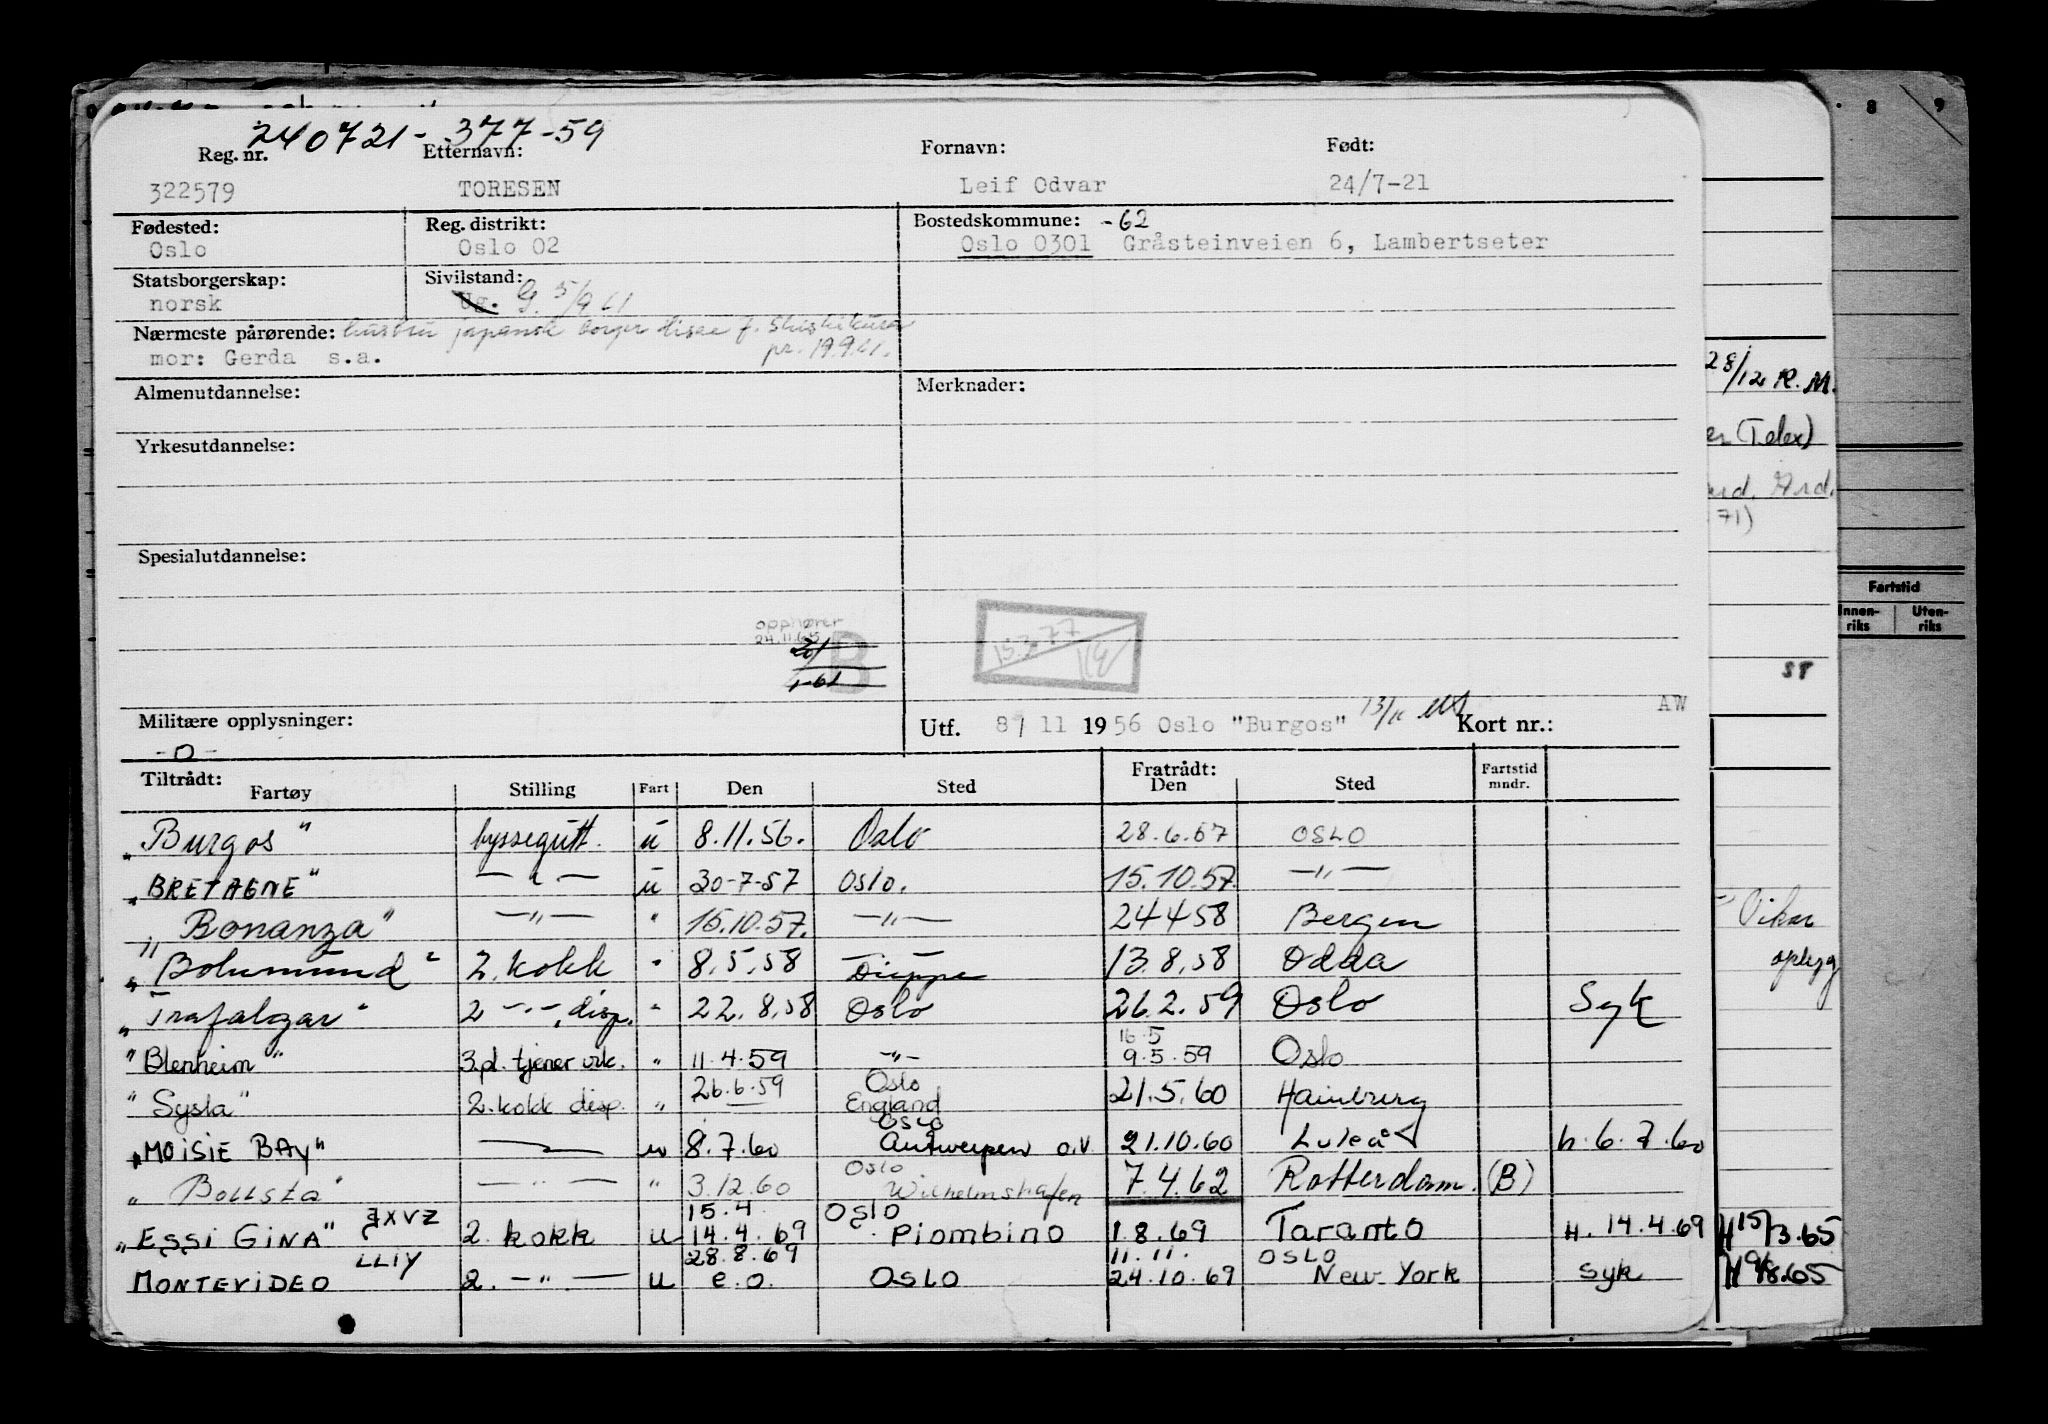 240721-377-59
Reg. nr. Etternavn: Fornavn: Født:
322579 TORESEN Leif Odvar 24/7-21
Fødested: Reg. distrikt: Bostedskommune: -62
Oslo Oslo 02 Oslo 0301 Gråsteinveien 6, Lambertseter
Statsborgerskap: Sivilstand:
norsk Ug. G. 5/9 61
Nærmeste pårørende: hustru japansk borger f.
mor: Gerda s.a. pr. 19.9.61.
Almenutdannelse: Merknader:
Yrkesutdannelse:
Spesialutdannelse:
opphører
24.11.65
B
15.2.77
Militære opplysninger: Utf. 8/ 11 1956 Oslo "Burgos" 13/11 Kort nr.: AW
-0-
Tiltrådt: Fratrådt: Fartstid mndr.
Fartøy Stilling Fart Den Sted Den Sted
"Burgos" byssegutt. u 8.11.56. Oslo 28.6.57 OSLO
"BRETAGNE" —"— u 30-7-57 Oslo. 15.10.57. —"—
"Bonanza" —"— " 15.10.57. —"— 24 4 58 Bergen
"Bohemund" 2. kokk " 8.5.58 Dieppe 13.8.58 Odda
"Trafalgar" 2 -"- disp. " 22.8.58 Oslo 26.2.59 Oslo Syk
16.5
"Blenheim" 3.pl. tjener vik. " 11.4.59 -"- 9.5.59 Oslo
Oslo
"Sysla" 2. kokk disp. " 26.6.59 England 21.5.60 Hamburg
Oslo
"MOISIE BAY" — u 8.7.60 Antwerpen o.v. 21.10.60 Luleå h.6.7.60
Oslo
"Bollsta" —"— " 3.12.60 Wilhelmshafen 7.4.62 Rotterdam. (B)
JXVZ 15.4. OSLO
"ESSI GINA" 2. kokk u 14.4.69 Piombino 1.8.69 Taranto H. 14.4.69
LLIY 28.8.69 11.11. OSLO
MONTEVIDEO 2. —"— u e.o. OSLO 24.10.69 New York syk
8 9
28/12 R.M.
(Telex)
71)
Fartstid
Innen-riks Uten-riks
58
Vikar
H 15/3.65